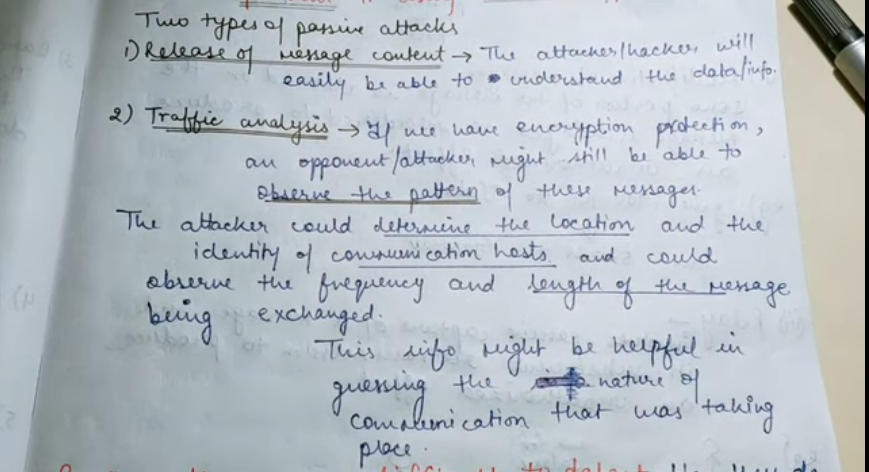 Two types of passive attacks
1) Release of message content → The attacker/hacker will
easily be able to understand the data/info.
2) Traffic analysis → If we have encryption protection,
an opponent/attacker might still be able to
observe the pattern of these messages.
The attacker could determine the location and the
identity of communication hosts and could
observe the frequency and length of the message
being exchanged.
This info might be helpful in
guessing the nature of
communication that was taking
place.